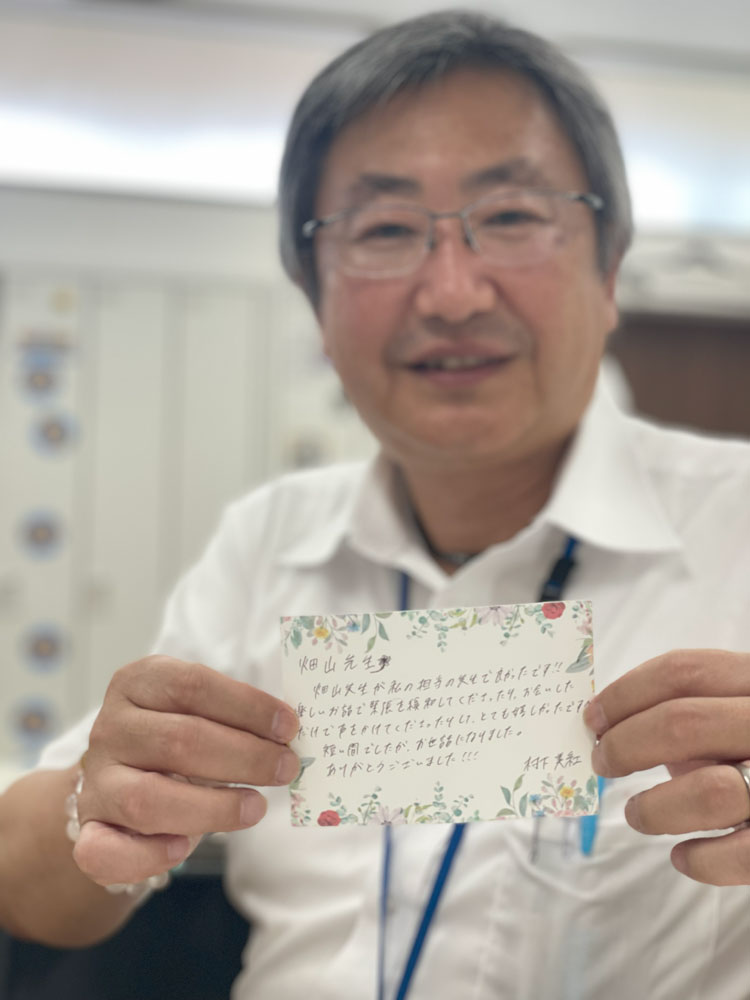 畑山先生
畑山先生が私の担当の先生で良かったです!!
楽しいお話で緊張を緩和してくださったり、お会いした
だけで声をかけてくださったりして、とても嬉しかったです
短い間でしたが、お世話になりました。
ありがとうございました!!!
村下 美紅